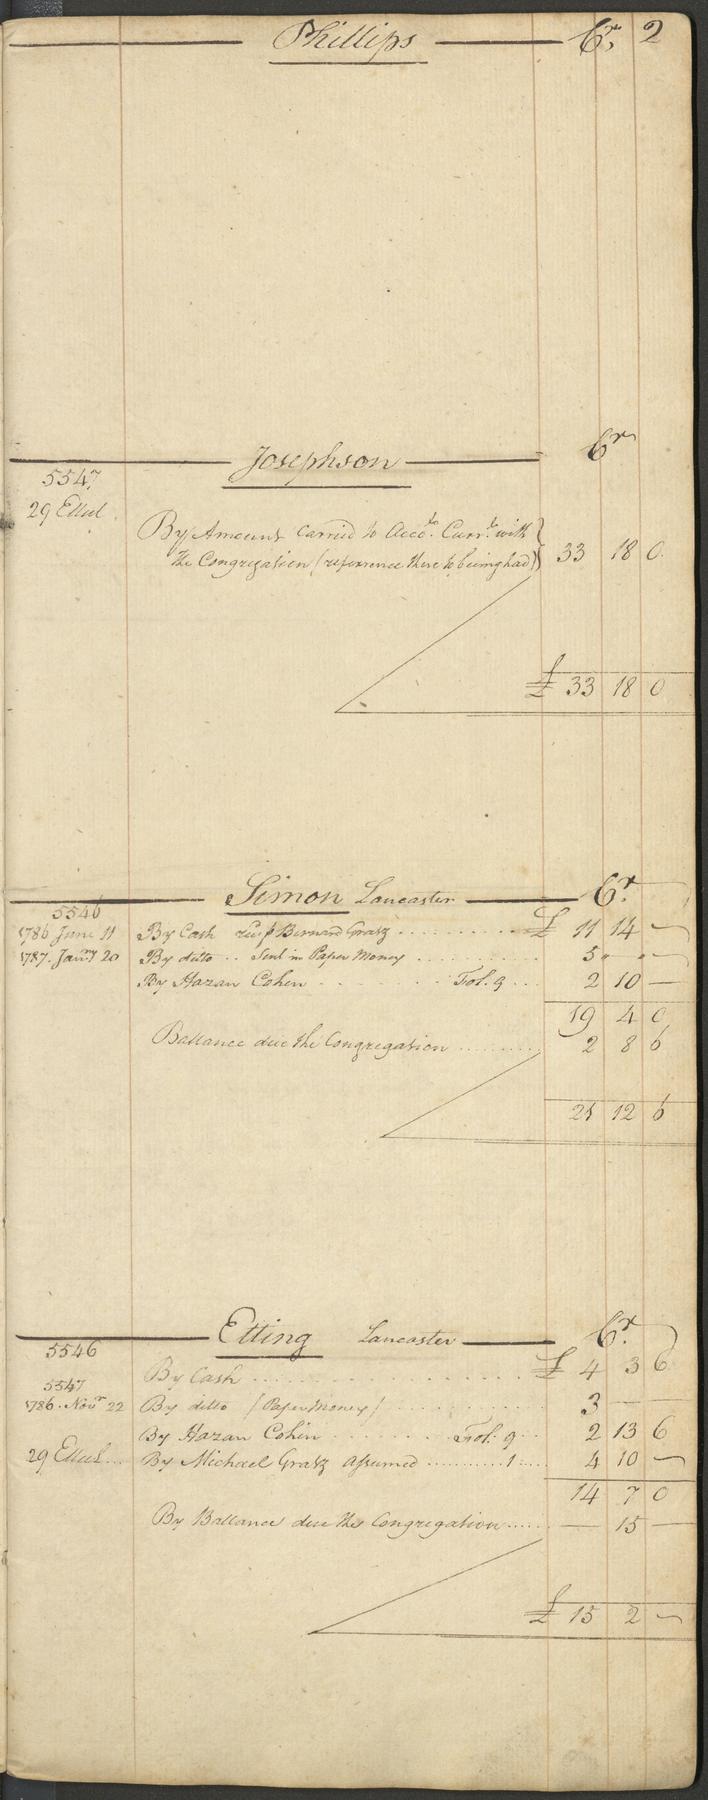 Phillips Cr. 2
Josephson Cr
5547
29 Ellul
By Amount Carried to Acco.to Curr.t with
the Congregation (referrence there to being had) 33 18 0
£ 33 18 0
Simon Lancaster Cr.
5546
1786 June 11 By Cash Bernard Gratz £ 11 14 —
1787. Jan.ry 20 By ditto .. Sent in Paper Money 5 " " —
By Hazan Cohen Fol. 9 2 10 —
19 4 0
Ballance due the Congregation 2 8 6
21 12 6
Etting Lancaster Cr.
5546
By Cash £ 4 3 6
5547
1786. Nov.r 22 By ditto (Paper Money) 3 — —
By Hazan Cohen Fol. 9 2 13 6
29 Ellul ... By Michael Gratz assumed 1 4 10 —
14 7 0
By Ballance due the Congregation — 15 —
£ 15 2 —